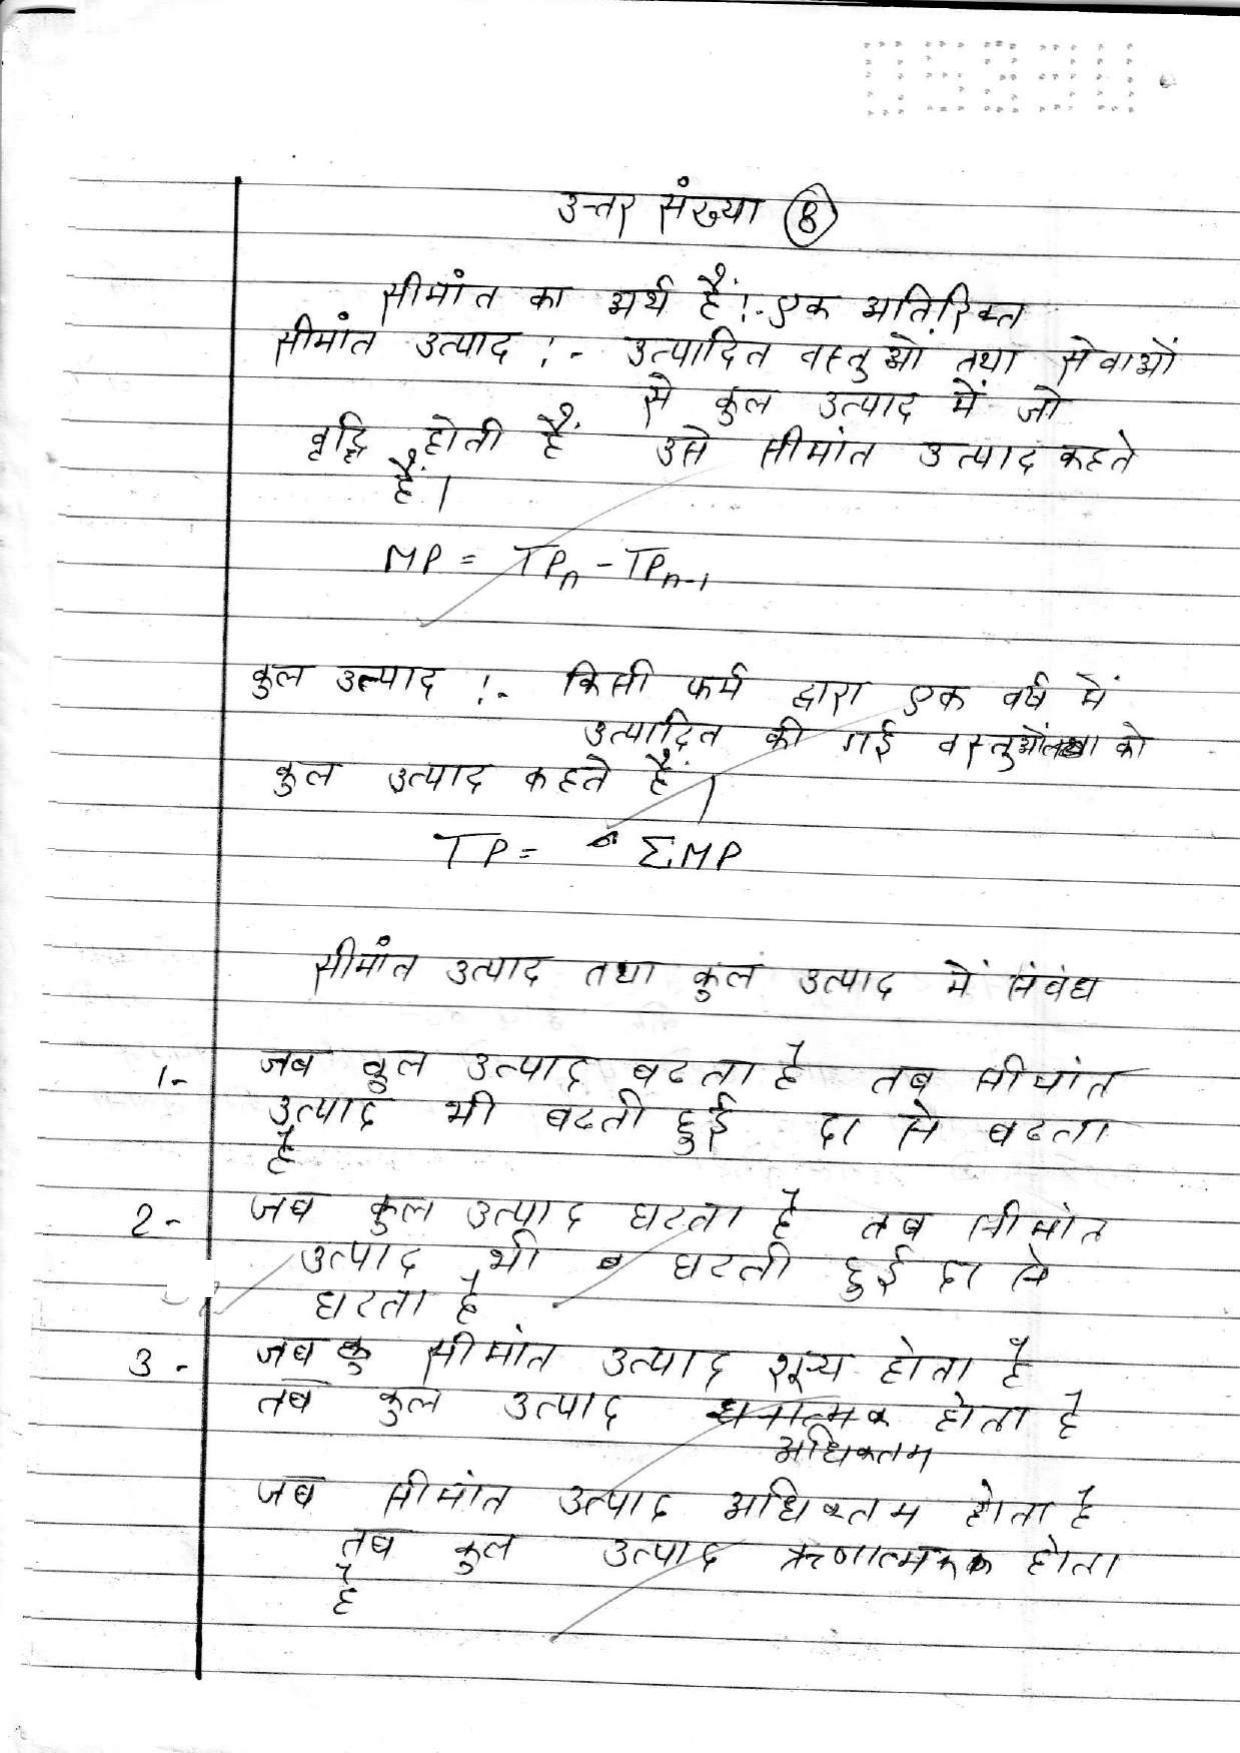 उत्तर संख्या (8)
सीमांत का अर्थ हैं :- एक अतिरिक्त
सीमांत उत्पाद :- उत्पादित वस्तुओं तथा सेवाओं
से कुल उत्पाद में जो
वृद्धि होती हैं उसे सीमांत उत्पाद कहते
हैं।
MP = TPn - TPn-1
कुल उत्पाद :- किसी फर्म द्वारा एक वर्ष में
उत्पादित की गई वस्तुओं को
कुल उत्पाद कहते हैं।
TP = ΣMP
सीमांत उत्पाद तथा कुल उत्पाद में संबंध
1- जब कुल उत्पाद बढता है तब सीमांत
उत्पाद भी बढती हुई दर से बढता
है
2- जब कुल उत्पाद घटता है तब सीमांत
उत्पाद भी घटती हुई दर से
घटता है
3- जब कु सीमांत उत्पाद शून्य होता है
तब कुल उत्पाद धनात्मक होता है
अधिकतम
जब सीमांत उत्पाद अधिकतम होता है
तब कुल उत्पाद ऋणात्मक होता
है